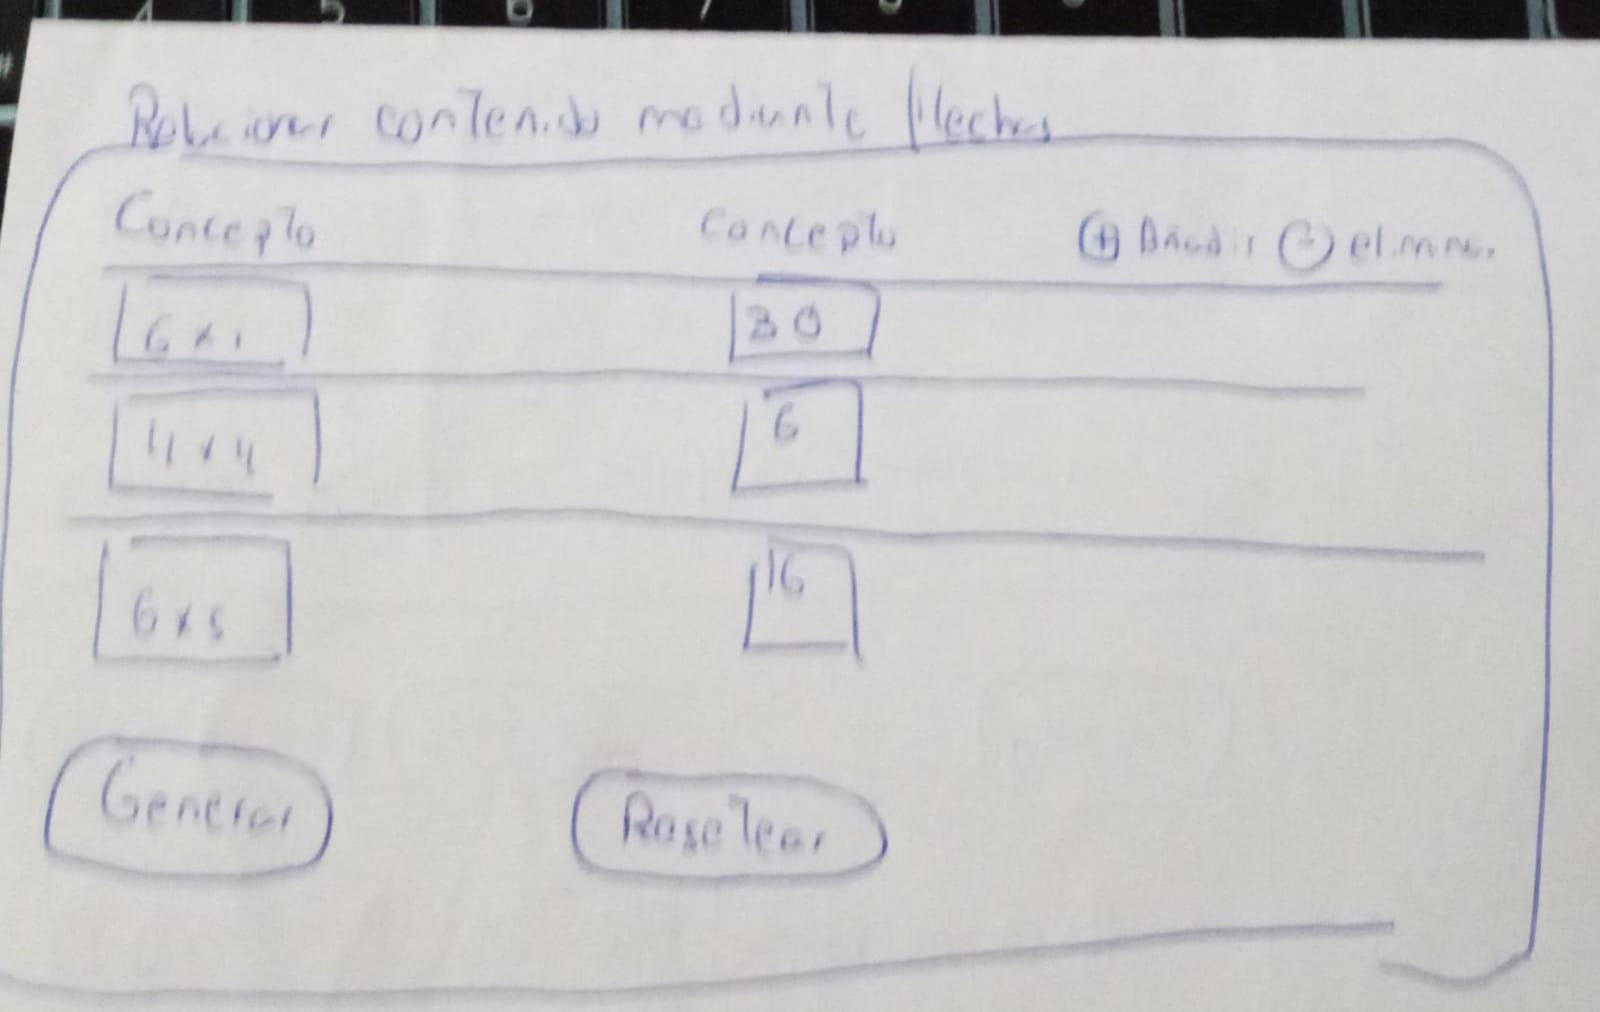 Relacionar contenido mediante flechas
Concepto concepto + Añadir - eliminar
6 x 1 30
4 x 4 6
6 x 5 16
Generar Resetear